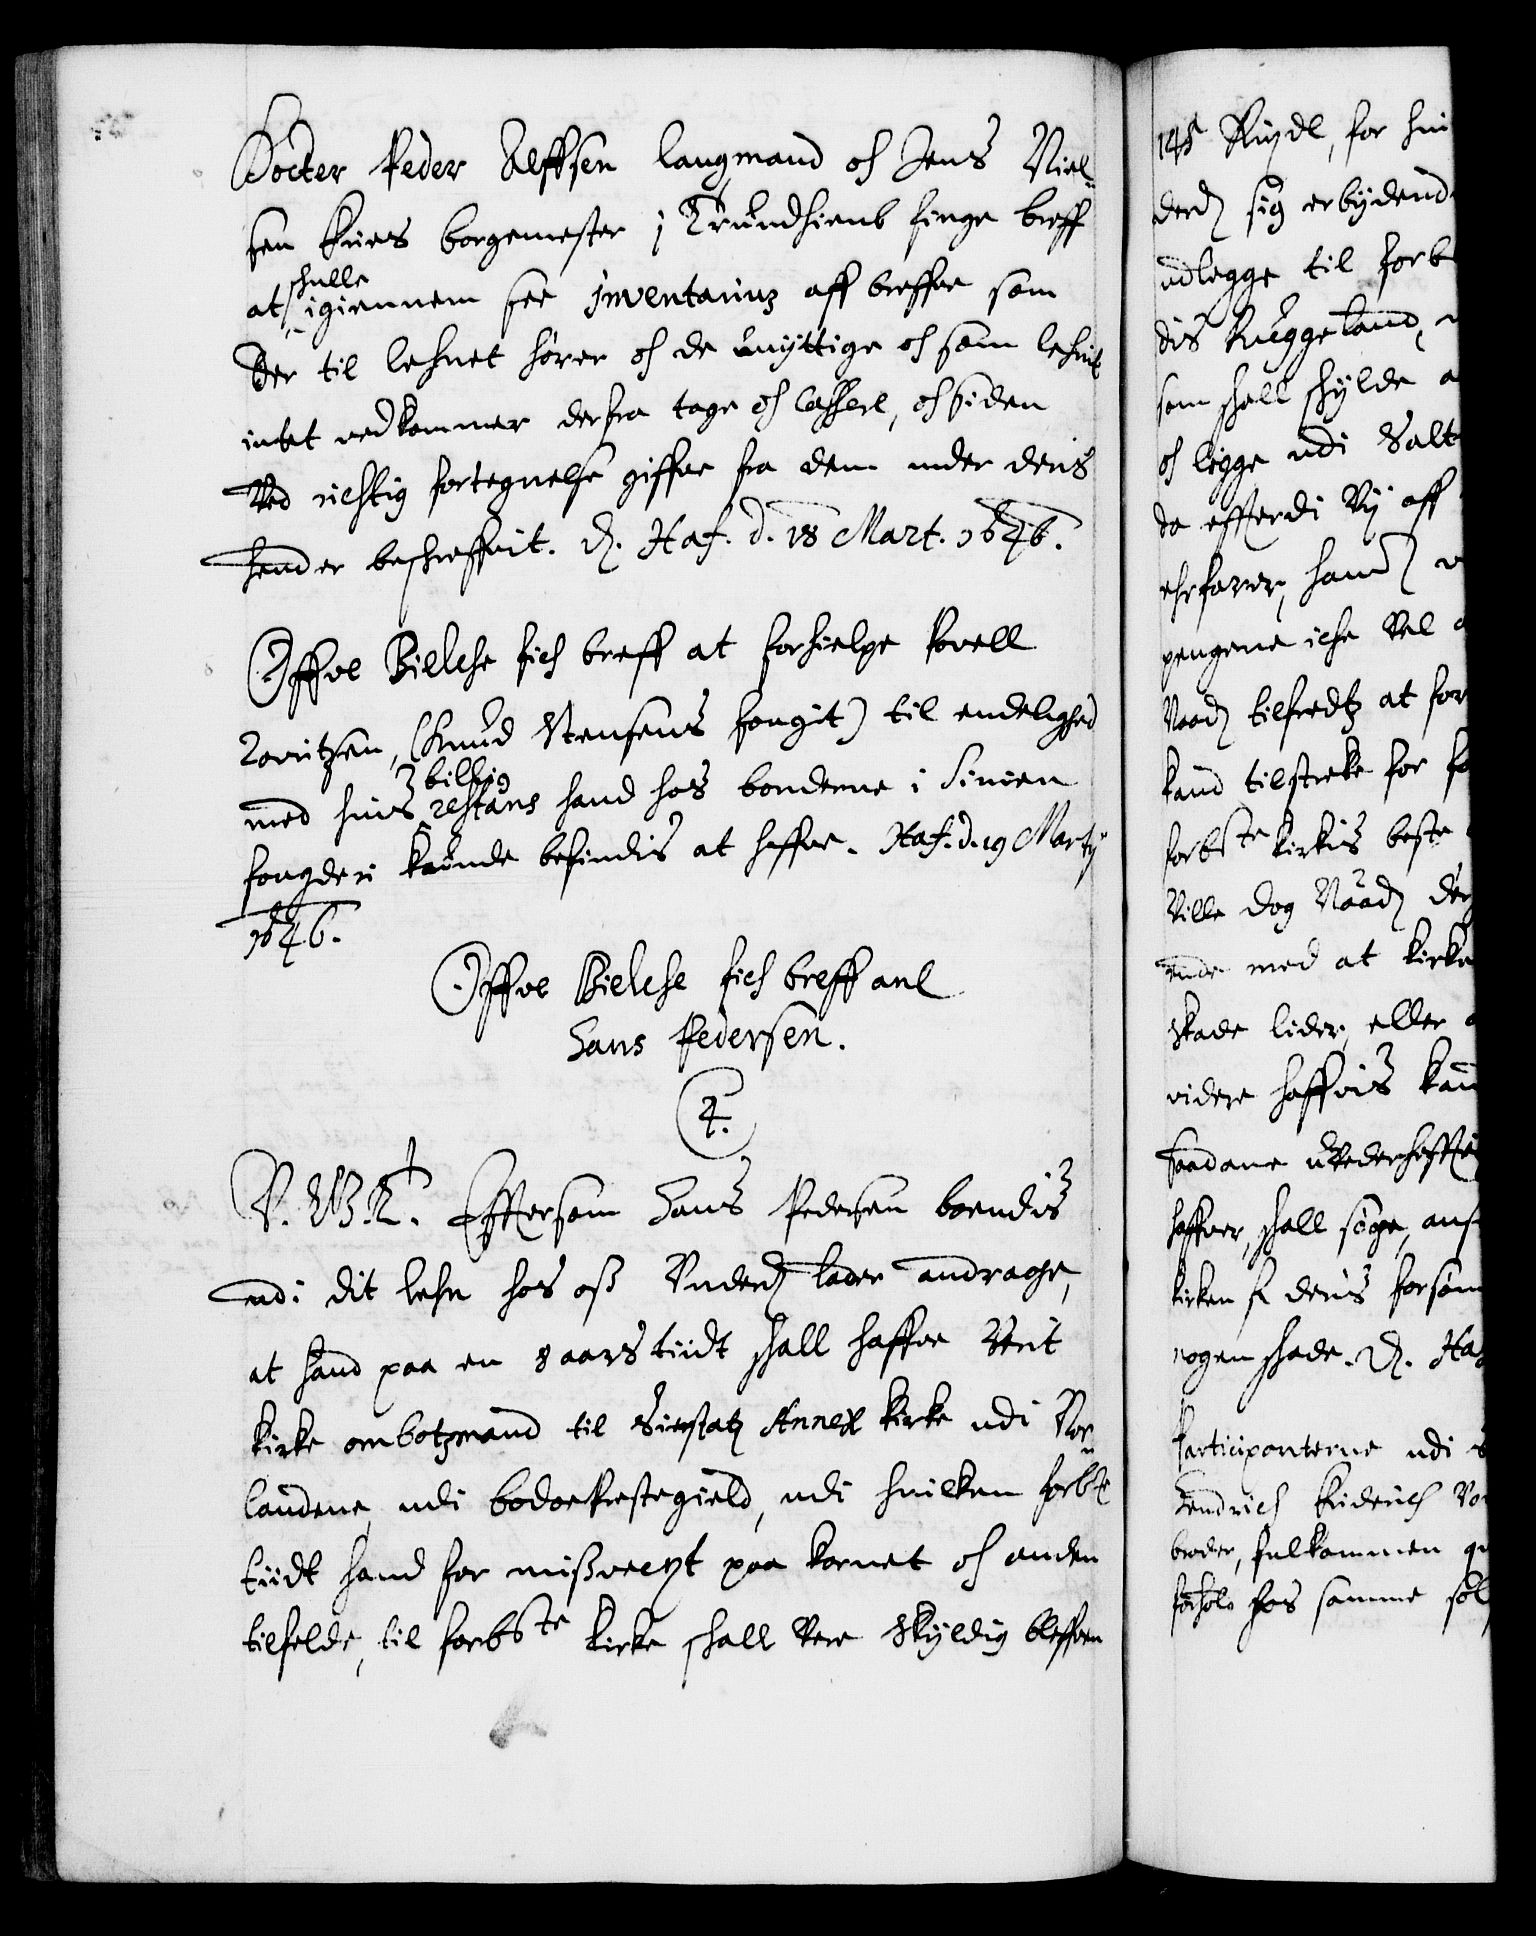 Docter Peder Alffsen laugmand och Jens Niel-
sen Kues borgemester i Trundhiemb finge breff
at skulle igiennem see Inventarium aff breffue som
der til lehnet hører och de unyttige och som lehnit
intet vedkommer derfra tage och Cassere, och siden
Ved richtig fortegnelse giffue fra dem under deris
hender beschreffuit. Haf. d. 18 Mart. 1646.
Offve Bielche fich breff at forhielpe Povell
Lauritzsen, (Knud Stensens fougit) til endelighed
med huis billig restans hand hos bonderne i Sinien
fougderi kunde befindis at haffue. Haf. d. 19 Marty
1646.
Offve Bielche fich breff anl
Hans Pedersen.
4.
V. G. T. Effttersom Hans Pedersen boendis
udi dit lehn hos oss Underd lader andrage,
at hand paa en 8 aars tiidt skall haffue Verit
kirke ombotzmand til Annex kirke udi Nor-
landene udi bodoe Prestegield, udi huilken forbte
tiidt hand for missvecxt paa kornet och anden
tilfelde, til forbste kirke skall Vere skyldig bleffuen
145 Rixdl, for hui
derd sig erbydend
udlegge til forb
dis Ruggeland,
som skall skylde a
och ligge udi Salt
da effterdi Vy aff
ehrfarer, hand
pengene iche Vel
Naad tilfredtz at for
kand tilstreke for fo
forbste kirkis beste
Ville dog Naad der
ende med at kirke
skade lider, eller
videre haffvis kan
saadane uVederhefftig
haffuer, skall søge, ans
kirken deris forsøm
nogen skade. Haf
Participanterne udi
Hendrich
broder, fulkommen
forhol hos samme søl